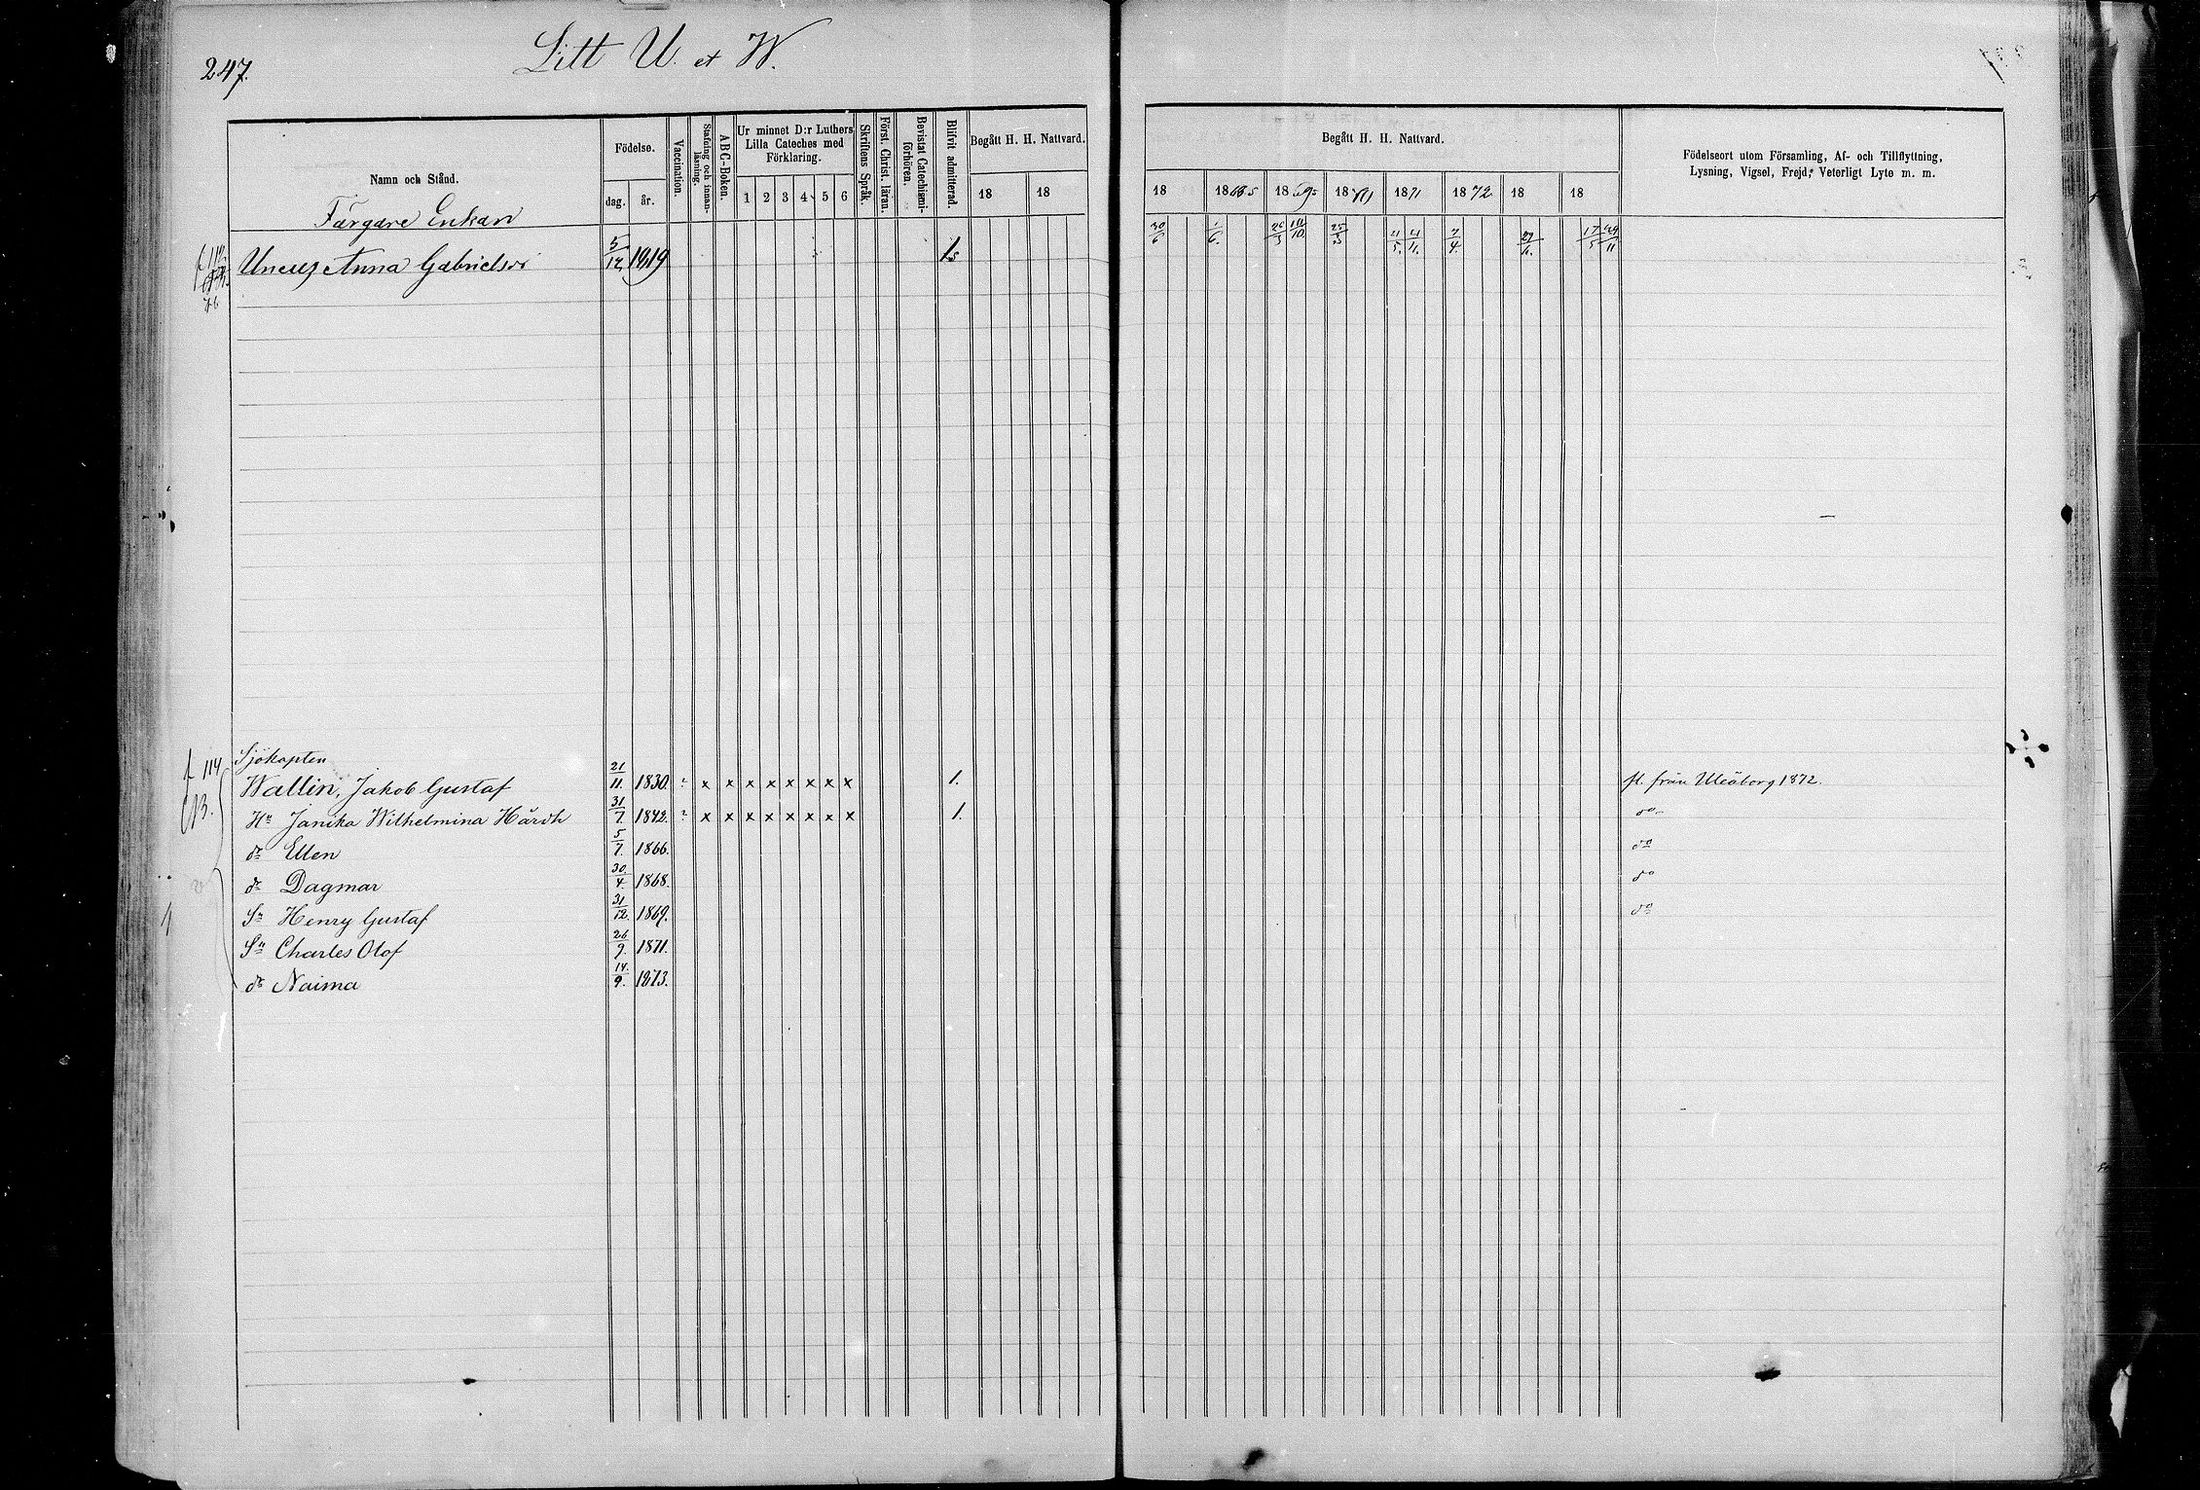 247.
Litt U. et W.
Namn och Stånd.
Födelse.
dag. år.
Vaccination.
Stafning och innanläsning.
ABC-Boken.
Ur minnet D:r Luthers Lilla Cateches med Förklaring.
1 2 3 4 5 6
Skriftens Språk.
Först. Christ. läran.
Bevistat Catechismiförhören.
Blifvit admitterad.
Begått H. H. Nattvard.
18 18
Begått H. H. Nattvard.
18 18 1869 18 1871 1872 18 18
Födelseort utom Församling, Af- och Tillflyttning,
Lysning, Vigsel, Frejd, Veterligt Lyte m. m.
Färgare Enkan
Anna Gabrielsdr 5/12 1819 1
30/6 1/6 25/3 21/5 21/11 7/4
Sjökapten
f 114 Wallin, Jakob Gustaf 21/11. 1830. x x x x x x x x 1. fl. från Uleåborg 1872.
Hu Janika Wilhelmina Hårdh 31/7. 1842. x x x x x x x x 1. do
dr Ellen 5/7. 1866. do
dr Dagmar 30/4. 1868. do
Sn Henry Gustaf 31/12. 1869. do
Sn Charles Olof 26/9. 1871.
dr Naima 14/9. 1873.